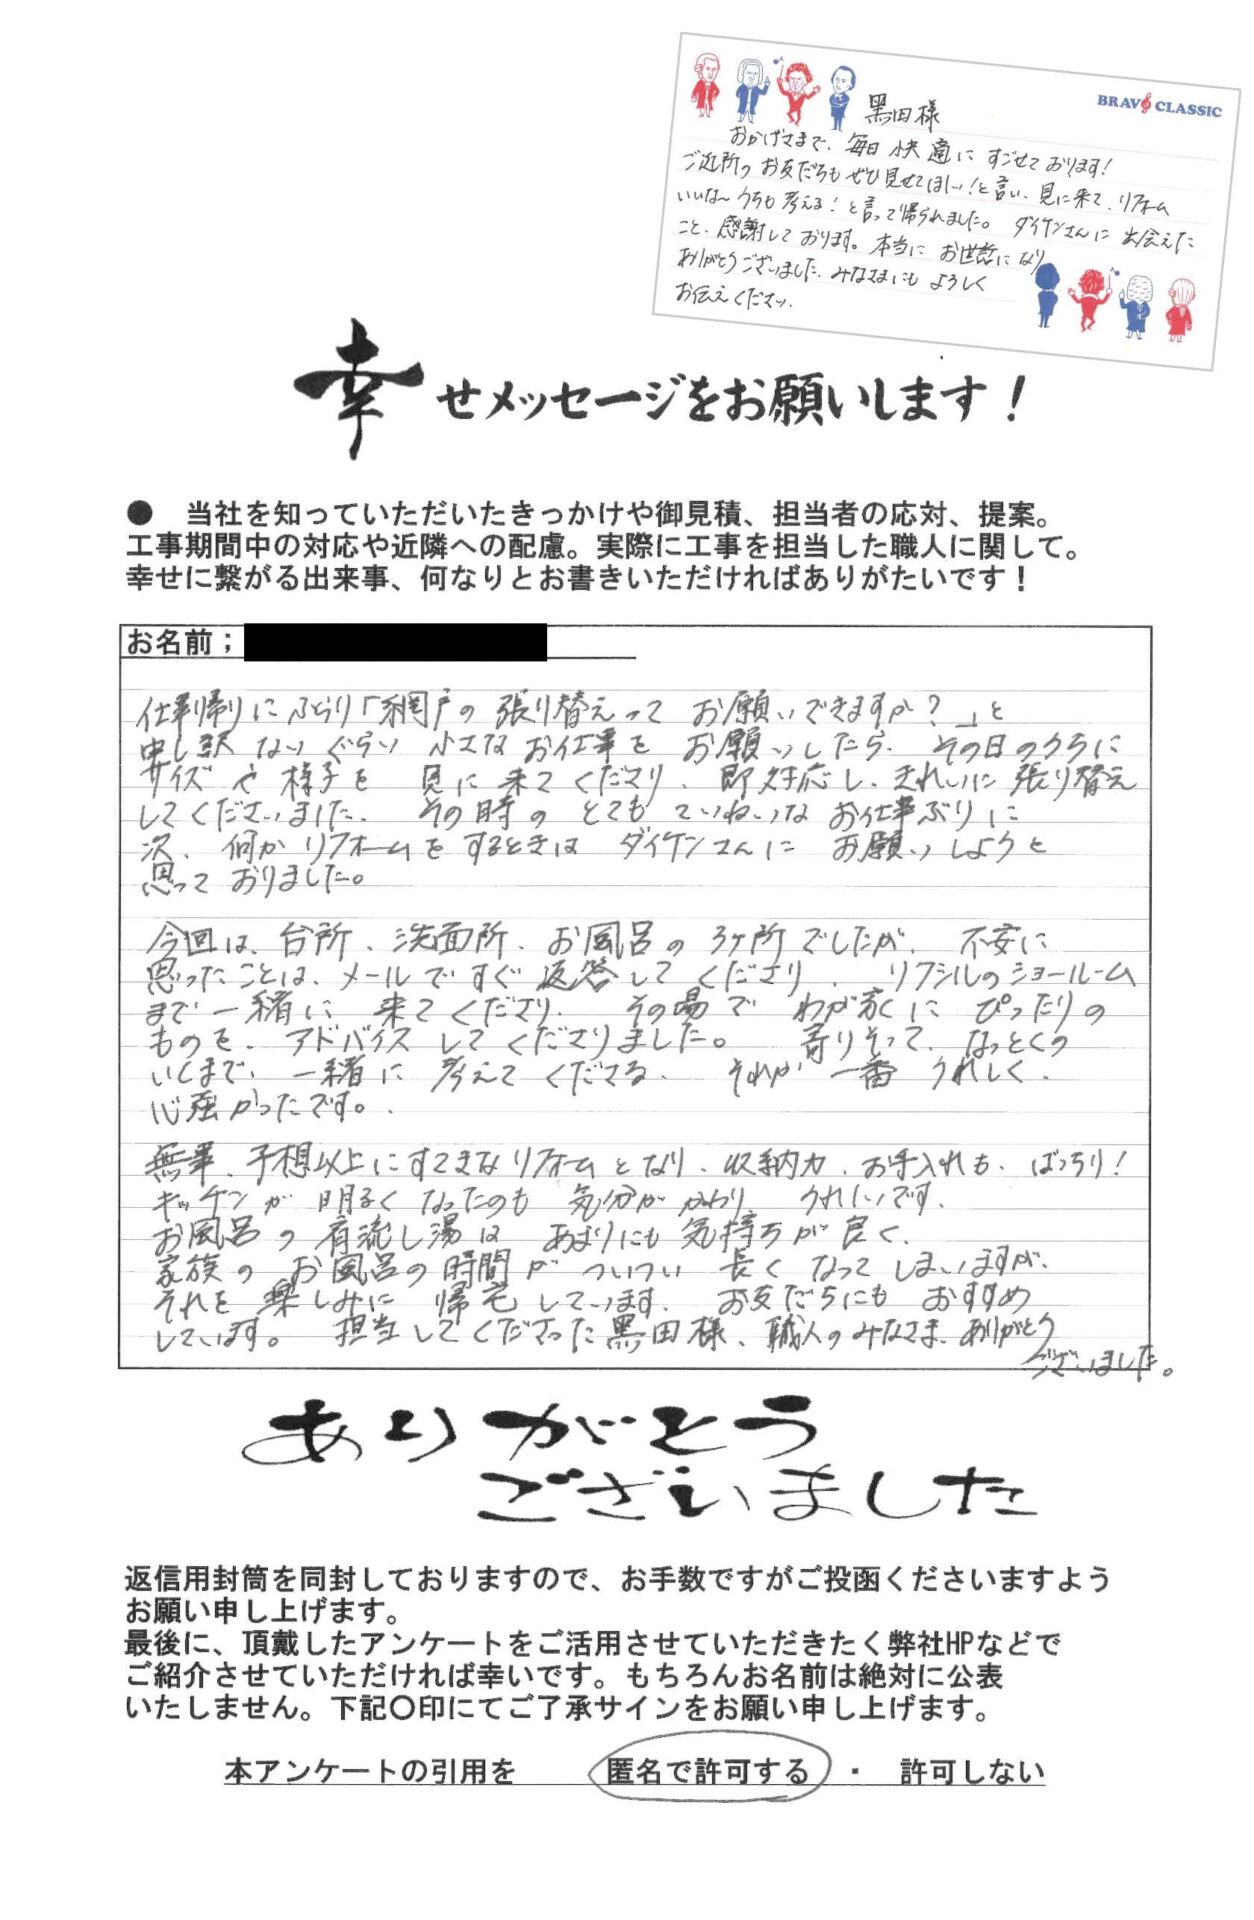 BRAVO CLASSIC
黒田様
おかげさまで、毎日快適にすごせております!
ご近所のお友だちもぜひ見せてほしい!と言い、見に来て、リフォーム
いいな〜うちも考える!と言って帰られました。ダイケンさんに出会えた
こと、感謝しております。本当にお世話になり
ありがとうございました。みなさまにもよろしく
お伝えください。
幸せメッセージをお願いします!
● 当社を知っていただいたきっかけや御見積、担当者の応対、提案。
工事期間中の対応や近隣への配慮。実際に工事を担当した職人に関して。
幸せに繋がる出来事、何なりとお書きいただければありがたいです!
お名前;
仕事帰りにふらり「網戸の張り替えって お願いできますか?」と
申し訳ないぐらい 小さなお仕事を お願いしたら、その日のうちに
サイズや様子を 見に来てくださり、即対応し、きれいに張り替え
してくださいました。 その時の とてもていねいなお仕事ぶりに
次、何かリフォームをするときは ダイケンさんに お願いしようと
思っておりました。
今回は、台所、洗面所、お風呂の3ヶ所でしたが、不安に
思ったことは、メールですぐ返答してくださり、リクシルのショールーム
まで一緒に 来てくださり、その場で わが家に ぴったりの
ものを、アドバイスしてくださりました。 寄りそって、なっとくの
いくまで、一緒に 考えてくださる、それが一番うれしく、
心強かったです。
無事、予想以上にすてきなリフォームとなり、収納力、お手入れも、ばっちり!
キッチンが 明るくなったのも 気分がかわり うれしいです。
お風呂の肩流し湯は あまりにも気持ちが良く、
家族の お風呂の時間が ついつい 長くなってしまいますが、
それを楽しみに 帰宅しています。 お友だちにも おすすめ
しています。 担当してくださった黒田様、職人のみなさま、ありがとう
ございました。
ありがとう
ございました
返信用封筒を同封しておりますので、お手数ですがご投函くださいますよう
お願い申し上げます。
最後に、頂戴したアンケートをご活用させていただきたく弊社HPなどで
ご紹介させていただければ幸いです。もちろんお名前は絶対に公表
いたしません。下記〇印にてご了承サインをお願い申し上げます。
本アンケートの引用を 匿名で許可する ・ 許可しない